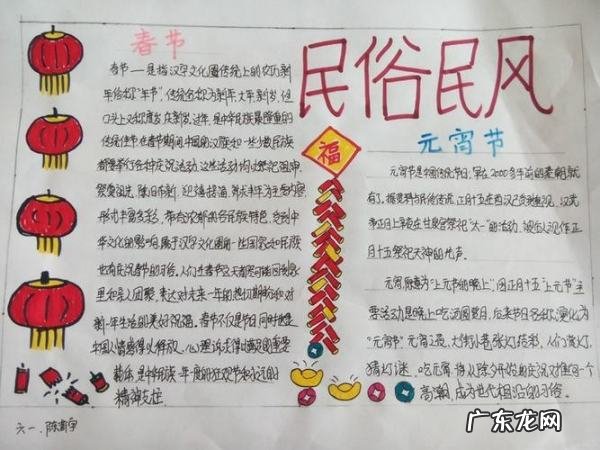 春节
春节——是指汉字文化圈传统上的农历新
年俗称"年节",传统名称为新年、大年、新岁,但
口头上又称度岁、庆新岁、过年,是中华民族最隆重的
传统佳节,在春节期间中国的汉族和一些少数民族
都要举行各种庆祝活动,这些活动均以祭祀祖神、
祭奠祖先、除旧布新、迎禧接福、祈求丰年为主要内容,
形式丰富多彩,带有浓郁的各民族特色,受到中
华文化的影响,属于汉字文化圈的一些国家和民族
也有庆祝春节的习俗。人们在春节这天都尽可能回到家
里和亲人团聚,表达对未来一年的热切期盼和对
新一年生活的美好祝福。春节不仅是节日同时也是
中国人情感得以释放、心理诉求得以满足的重要
载体,是中华民族一年一度的狂欢节和永远的
精神支柱
民俗民风
福
元宵节
元宵节是中国传统节日,早在2000多年前的秦朝就
有了。据资料与民俗传说,正月十五在西汉已受到重视,汉武
帝正月上辛夜在甘泉宫祭祀"太一"的活动,被后人视作正
月十五祭祀天神的先声。
元宵,原意为"上元节的晚上",因正月十五"上元节"主
要活动是晚上吃汤圆赏月,后来节日名称演化为
"元宵节"元宵之夜,大街小巷张灯结彩,人们赏灯,
猜灯谜,吃元宵,将从除夕开始的庆祝活动推向一个
高潮,成为世代相沿的习俗。
六一、陈
广东龙网